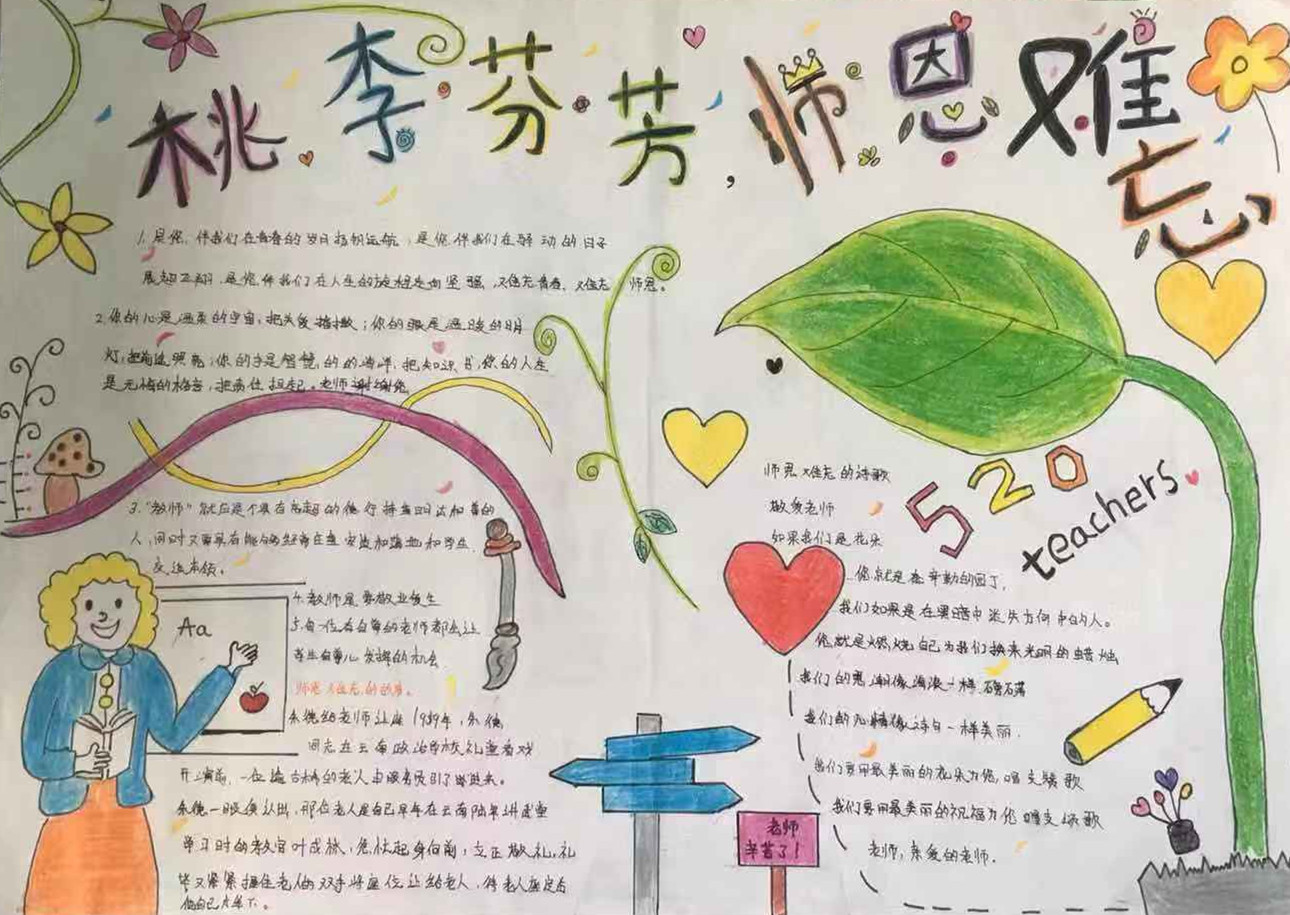 桃李芬芳,师恩难忘
1.是您,伴我们在青春的岁月扬帆远航,是您伴我们在躁动的日子
展翅飞翔,是您伴我们在人生的旅程走向坚强,难忘青春、难忘师恩。
2.你的心是温柔的宇宙,把关爱播撒;你的眼是温暖的明
灯,把前途照亮;你的手是智慧的的海洋,把知识 ,你的人生
是无悔的格言,把责任担起。老师谢谢您
3."教师"就应是个具有高超的德行 和善的
人,同时又需具有能够经常在 地和学生
交往本领。
4.教师是要敬业爱生
5.每一位有自尊的老师都会让
学生自尊心发挥的机会
师恩难忘的故事。
朱德给老师让座1959年,朱德
同志在云南政治学校礼堂看戏
开演前,一位 的老人由服务员引了进来。
朱德一眼便认出,那位老人是自己早年在云南陆军讲武堂
学习时的教官叶成林,急忙起身向前,立正敬礼,礼
毕又紧紧握住老人的双手将座位让给老人,待老人坐定后
他自己才坐下。
Aa
520
teachers
师恩难忘的诗歌
敬爱老师
如果我们是花朵
您就是 辛勤的园丁,
我们如果是在黑暗中迷失方向中的人。
您就是燃烧自己为我们换来光明的蜡烛
我们的恩潮像海浪一样
我们的心情像诗句一样美丽.
我们要用最美丽的花朵为您,唱支颂歌
我们要用最美丽的祝福为您唱支颂歌
老师,亲爱的老师.
老师
辛苦了!